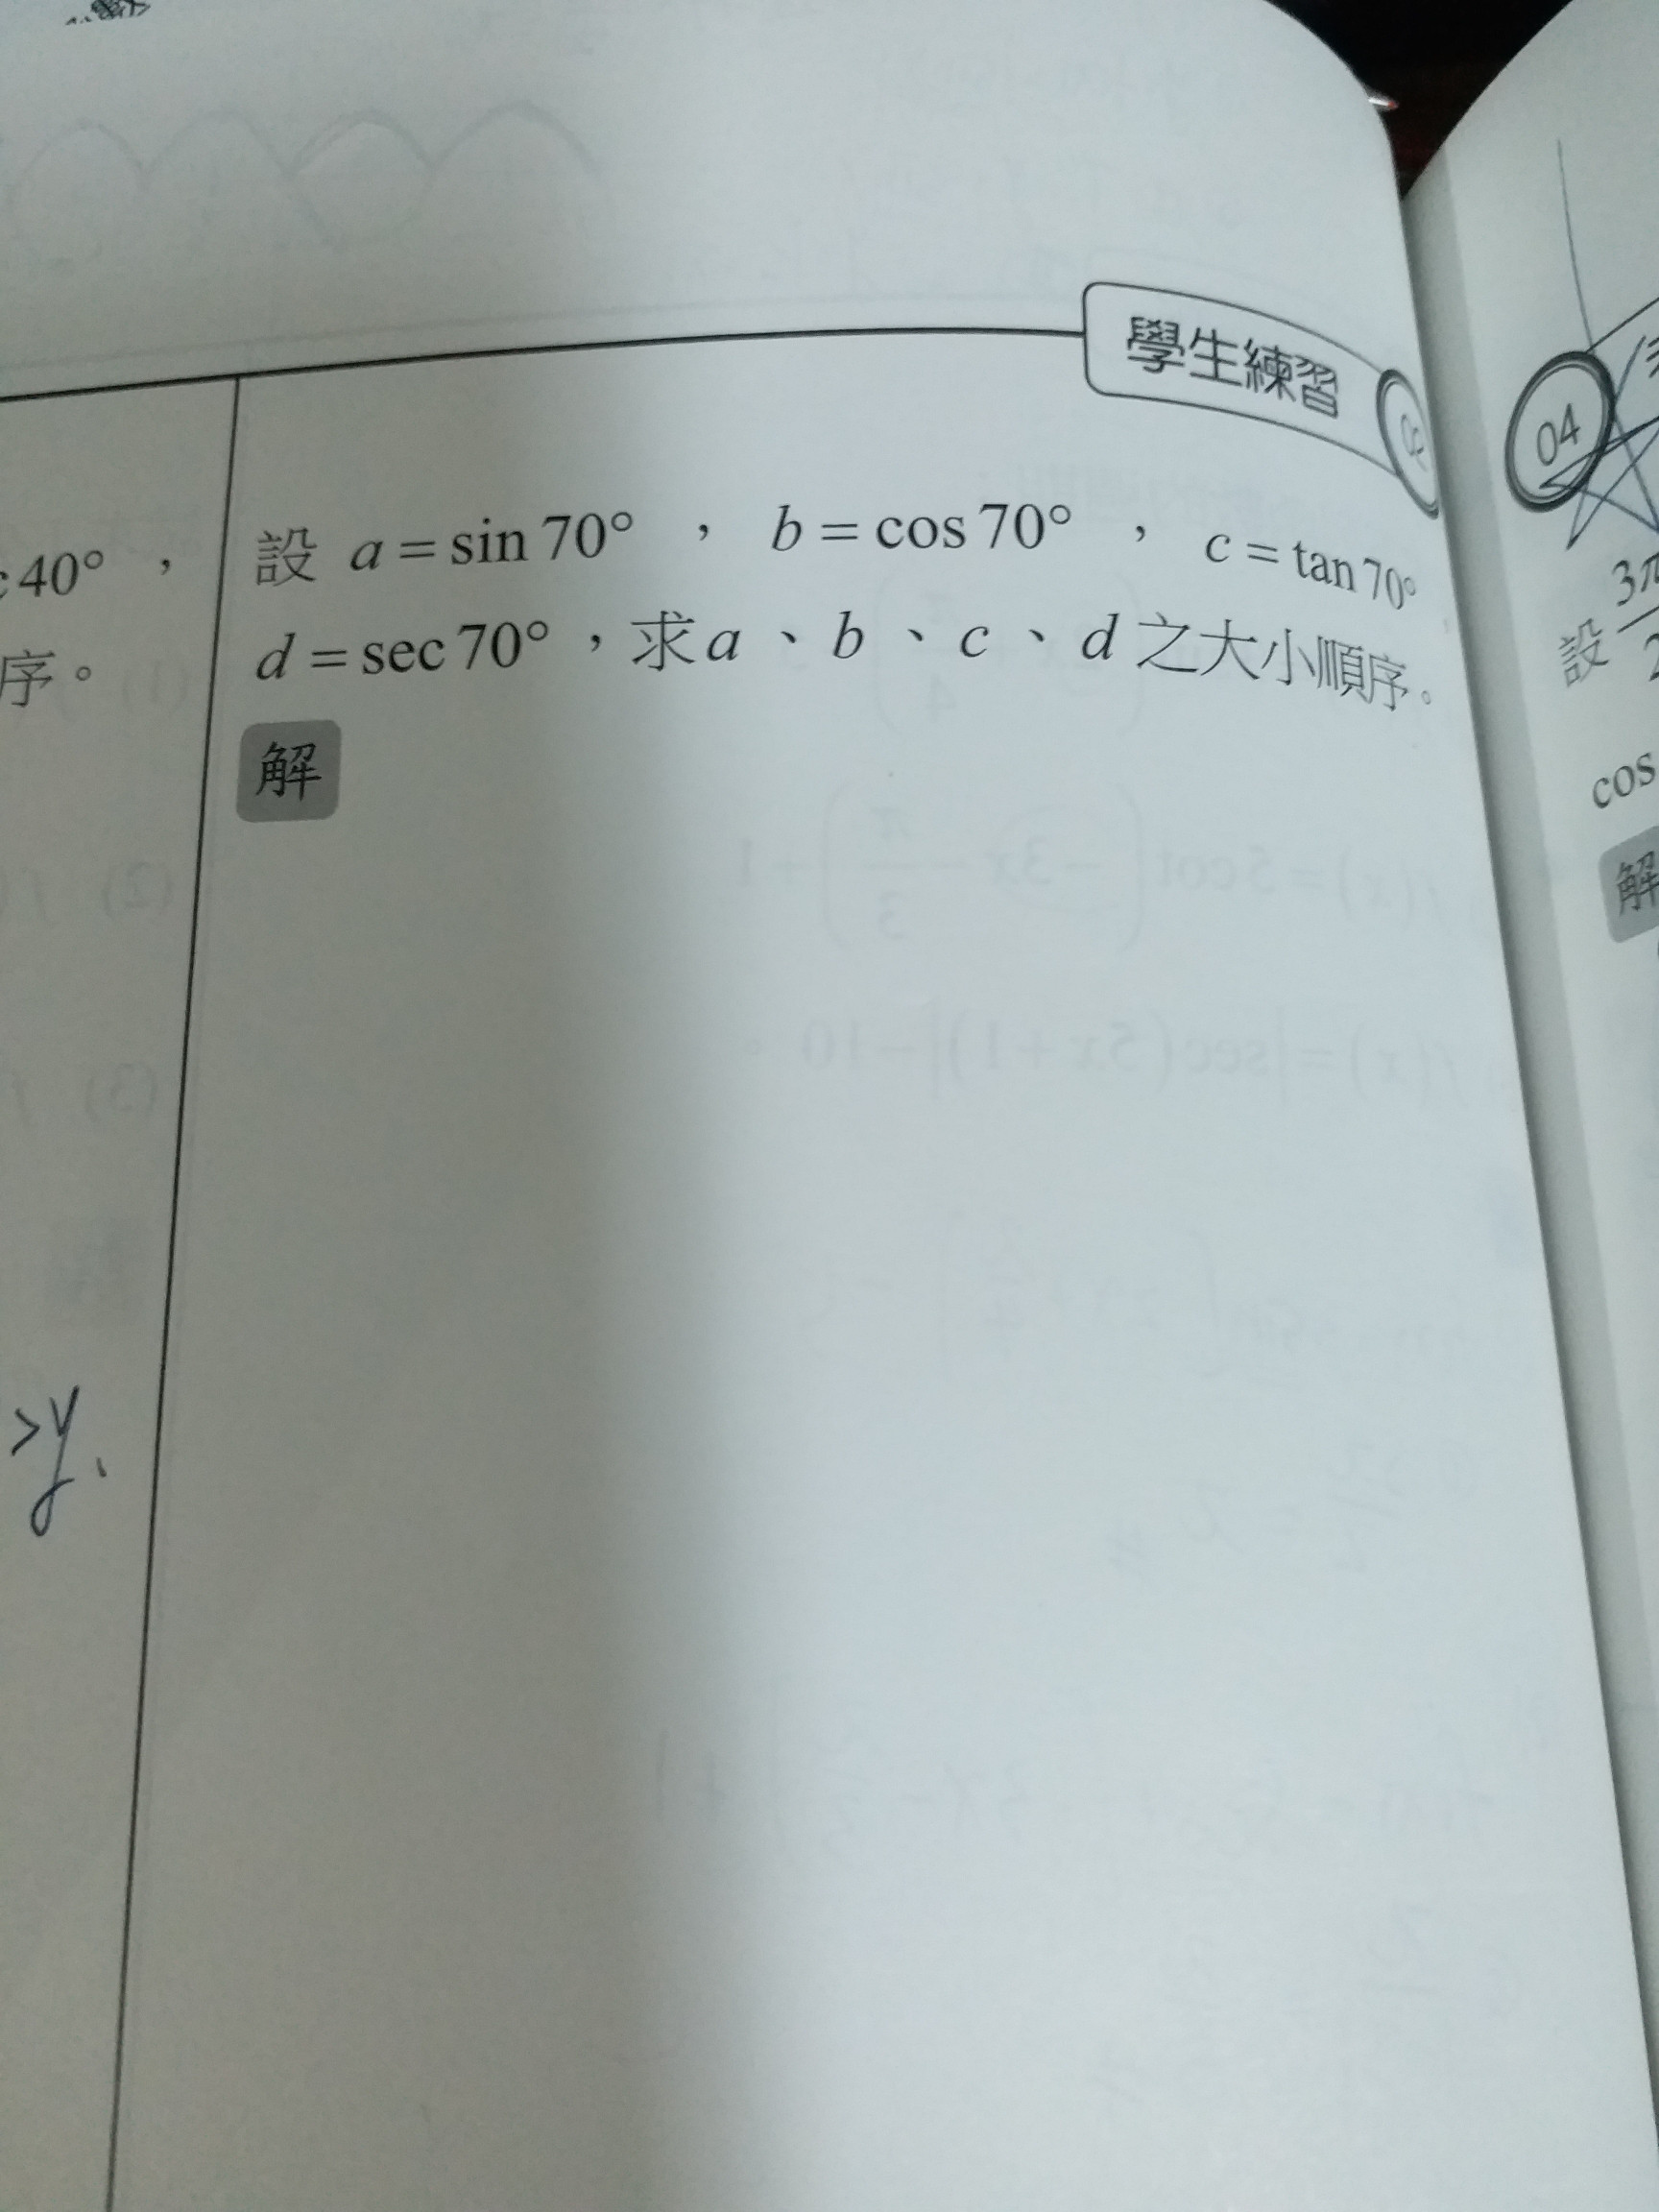 學生練習
04
c 40°，
序。
>y
設 a = sin 70° ， b = cos 70° ， c = tan 70°
d = sec 70°，求a、b、c、d之大小順序。
解
設 3π
2
cos
解